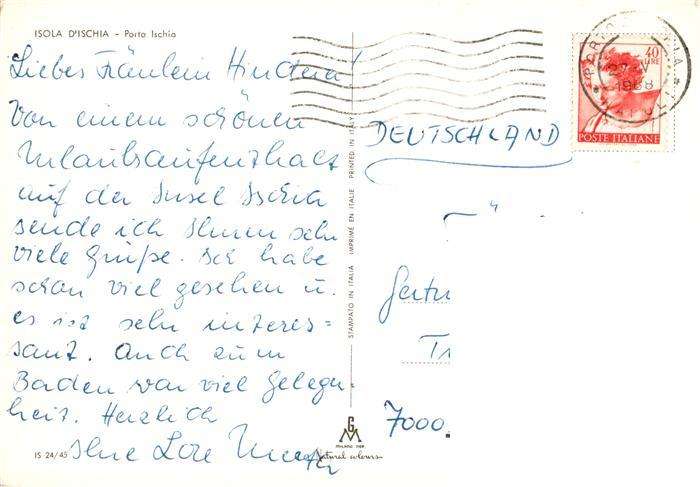 ISOLA D'ISCHIA - Porto Ischia
Liebes Fräulein
Von einem schönen
Urlaubsaufenthalt
auf der Insel Ischia
sende ich Ihnen sehr
viele Grüße. Ich habe
schon viel gesehen u.
es ist sehr interes=
sant. Auch zum
Baden war viel Gelegen-
heit. Herzlich
Ihre Lore
IS 24/45
STAMPATO IN ITALIA IMPRIMÉ EN ITALIE PRINTED IN ITALY
GM
MILANO
Natural colours
40
LIRE
POSTE ITALIANE
1968
DEUTSCHLAND
7000.